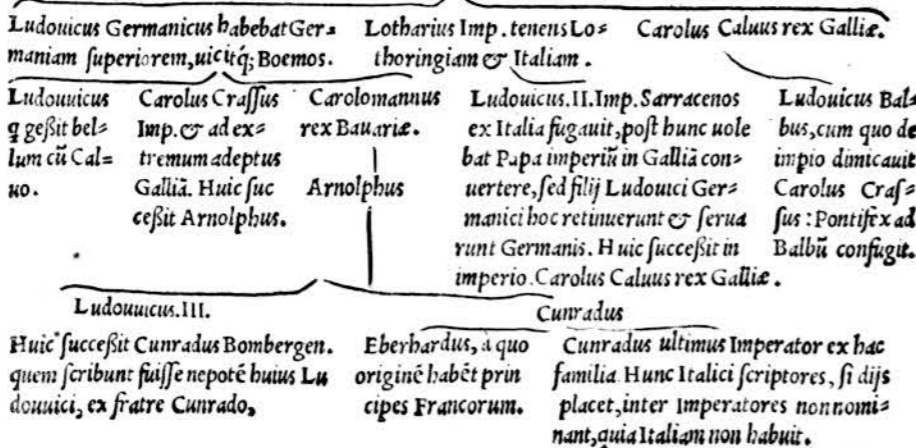 Ludouicus Germanicus habebat Ger⸗
maniam ſuperiorem, uicitq́; Boemos.
Lotharius Imp. tenens Lo⸗
thoringiam & Italiam.
Carolus Caluus rex Galliæ.
Ludouuicus
q geßit bel⸗
lum cū Cal⸗
uo.
Carolus Craſſus
Imp. & ad ex⸗
tremum adeptus
Galliā. Huic ſuc
ceßit Arnolphus.
Carolomannus
rex Bauariæ.
Arnolphus
Ludouicus. II. Imp. Sarracenos
ex Italia fugauit, poſt hunc uole
bat Papa imperiū in Galliā con⸗
uertere, ſed filij Ludouici Ger⸗
manici hoc retinuerunt & ſerua
runt Germanis. Huic ſucceßit in
imperio. Carolus Caluus rex Galliæ.
Ludouicus Bal⸗
bus, cum quo de
impio dimicauit
Carolus Craſ⸗
ſus: Pontifex ad
Balbū confugit.
Ludouuicus. III.
Cunradus
Huic ſucceßit Cunradus Bombergen.
quem ſcribunt fuiſſe nepotē huius Lu
douuici, ex fratre Cunrado,
Eberhardus, à quo
originē habēt prin
cipes Francorum.
Cunradus ultimus Imperator ex hac
familia. Hunc Italici ſcriptores, ſi dijs
placet, inter Imperatores non nomi⸗
nant, quia Italiam non habuit.